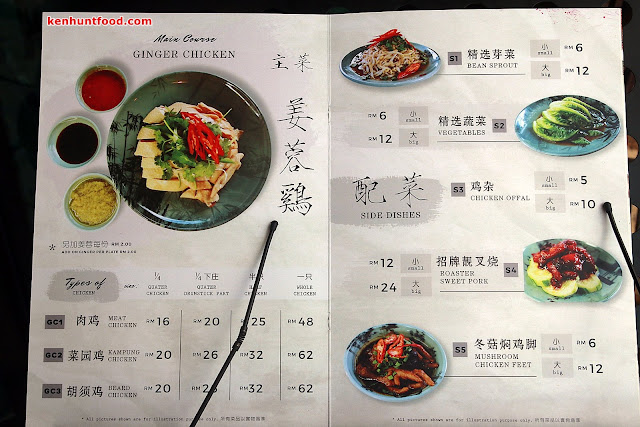 kenhuntfood.com
Main Course
GINGER CHICKEN
主菜
姜蓉鷄
* 另加姜蓉每份 RM 2.00
ADD ON GINGER PER PLATE RM 2.00
Types of
CHICKEN
size.
1/4
QUATER
CHICKEN
1/4 下庄
QUATER
DRUMSTICK PART
CHICKEN
一只
WHOLE
CHICKEN
GC1 肉鸡 MEAT CHICKEN RM 16 RM 20 25 RM 48
GC2 菜园鸡 KAMPUNG CHICKEN RM 20 RM 26 RM 32 RM 62
GC3 胡须鸡 BEARD CHICKEN RM 20 RM 32 RM 62
* All pictures shown are for illustration purpose only.
S1 精选芽菜 BEAN SPROUT
小 small RM 6
大 big RM 12
RM 6 小 small
RM 12 大 big
精选蔬菜 S2
VEGETABLES
配菜
SIDE DISHES
S3 鸡杂 CHICKEN OFFAL
小 small RM 5
大 big RM 10
RM 12 小 small
RM 24 大 big
招牌靓叉烧 S4
ROASTER
SWEET PORK
S5 冬菇焖鸡脚
MUSHROOM
CHICKEN FEET
小 small RM 6
大 big RM 12
* All pictures shown are for illustration purpose only.